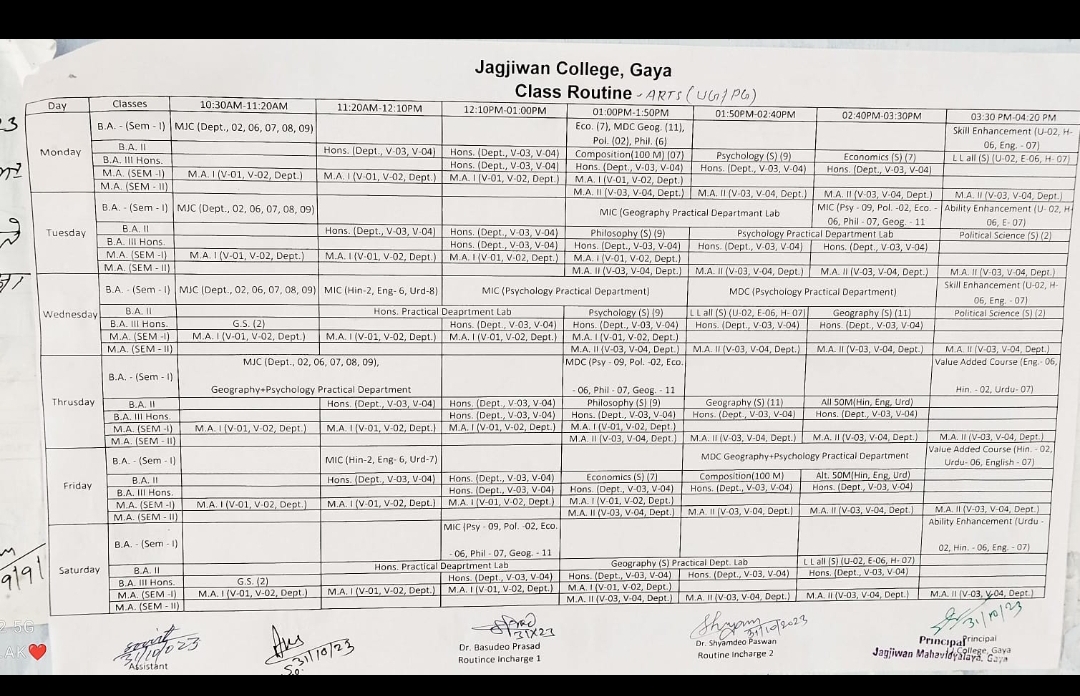 Jagjiwan College, Gaya
Class Routine - ARTS (UG/PG)
Day Classes 10:30AM-11:20AM 11:20AM-12:10PM 12:10PM-01:00PM 01:00PM-1:50PM 01:50PM-02:40PM 02:40PM-03:30PM 03:30 PM-04:20 PM
Monday
B.A. - (Sem - I) MJC (Dept., 02, 06, 07, 08, 09) Eco. (7), MDC Geog. (11), Skill Enhancement (U-02, H-
Pol. (02), Phil. (6) 06, Eng. - 07)
B.A. II Hons. (Dept., V-03, V-04) Hons. (Dept., V-03, V-04) Composition(100 M) (07) Psychology (S) (9) Economics (S) (7) L L all (S) (U-02, E-06, H- 07)
B.A. III Hons. Hons. (Dept., V-03, V-04) Hons. (Dept., V-03, V-04) Hons. (Dept., V-03, V-04) Hons. (Dept., V-03, V-04)
M.A. (SEM -I) M.A. I (V-01, V-02, Dept.) M.A. I (V-01, V-02, Dept.) M.A. I (V-01, V-02, Dept.) M.A. I (V-01, V-02, Dept.)
M.A. (SEM - II) M.A. II (V-03, V-04, Dept.) M.A. II (V-03, V-04, Dept.) M.A. II (V-03, V-04, Dept.) M.A. II (V-03, V-04, Dept.)
Tuesday
B.A. - (Sem - I) MJC (Dept., 02, 06, 07, 08, 09) MIC (Geography Practical Departmant Lab MIC (Psy - 09, Pol. -02, Eco. - Ability Enhancement (U- 02, H-
06, Phil - 07, Geog. - 11 06, E- 07)
B.A. II Hons. (Dept., V-03, V-04) Hons. (Dept., V-03, V-04) Philosophy (S) (9) Psychology Practical Department Lab Political Science (S) (2)
B.A. III Hons. Hons. (Dept., V-03, V-04) Hons. (Dept., V-03, V-04) Hons. (Dept., V-03, V-04) Hons. (Dept., V-03, V-04)
M.A. (SEM -I) M.A. I (V-01, V-02, Dept.) M.A. I (V-01, V-02, Dept.) M.A. I (V-01, V-02, Dept.) M.A. I (V-01, V-02, Dept.)
M.A. (SEM - II) M.A. II (V-03, V-04, Dept.) M.A. II (V-03, V-04, Dept.) M.A. II (V-03, V-04, Dept.) M.A. II (V-03, V-04, Dept.)
Wednesday
B.A. - (Sem - I) MJC (Dept., 02, 06, 07, 08, 09) MIC (Hin-2, Eng- 6, Urd-8) MIC (Psychology Practical Department) MDC (Psychology Practical Department) Skill Enhancement (U-02, H-
06, Eng. - 07)
B.A. II Hons. Practical Deaprtment Lab Psychology (S) (9) L L all (S) (U-02, E-06, H- 07) Geography (S) (11) Political Science (S) (2)
B.A. III Hons. G.S. (2) Hons. (Dept., V-03, V-04) Hons. (Dept., V-03, V-04) Hons. (Dept., V-03, V-04) Hons. (Dept., V-03, V-04)
M.A. (SEM -I) M.A. I (V-01, V-02, Dept.) M.A. I (V-01, V-02, Dept.) M.A. I (V-01, V-02, Dept.) M.A. I (V-01, V-02, Dept.)
M.A. (SEM - II) M.A. II (V-03, V-04, Dept.) M.A. II (V-03, V-04, Dept.) M.A. II (V-03, V-04, Dept.) M.A. II (V-03, V-04, Dept.)
Thrusday
B.A. - (Sem - I) MJC (Dept., 02, 06, 07, 08, 09), MDC (Psy - 09, Pol. -02, Eco. Value Added Course (Eng.- 06,
Geography+Psychology Practical Department - 06, Phil - 07, Geog. - 11 Hin. - 02, Urdu- 07)
B.A. II Hons. (Dept., V-03, V-04) Hons. (Dept., V-03, V-04) Philosophy (S) (9) Geography (S) (11) All 50M(Hin, Eng, Urd)
B.A. III Hons. Hons. (Dept., V-03, V-04) Hons. (Dept., V-03, V-04) Hons. (Dept., V-03, V-04) Hons. (Dept., V-03, V-04)
M.A. (SEM -I) M.A. I (V-01, V-02, Dept.) M.A. I (V-01, V-02, Dept.) M.A. I (V-01, V-02, Dept.) M.A. I (V-01, V-02, Dept.)
M.A. (SEM - II) M.A. II (V-03, V-04, Dept.) M.A. II (V-03, V-04, Dept.) M.A. II (V-03, V-04, Dept.) M.A. II (V-03, V-04, Dept.)
Friday
B.A. - (Sem - I) MIC (Hin-2, Eng- 6, Urd-7) MDC Geography+Psychology Practical Department Value Added Course (Hin. - 02,
Urdu- 06, English - 07)
B.A. II Hons. (Dept., V-03, V-04) Hons. (Dept., V-03, V-04) Economics (S) (7) Composition(100 M) Alt. 50M(Hin, Eng, Urd)
B.A. III Hons. Hons. (Dept., V-03, V-04) Hons. (Dept., V-03, V-04) Hons. (Dept., V-03, V-04) Hons. (Dept., V-03, V-04)
M.A. (SEM -I) M.A. I (V-01, V-02, Dept.) M.A. I (V-01, V-02, Dept.) M.A. I (V-01, V-02, Dept.) M.A. I (V-01, V-02, Dept.)
M.A. (SEM - II) M.A. II (V-03, V-04, Dept.) M.A. II (V-03, V-04, Dept.) M.A. II (V-03, V-04, Dept.) M.A. II (V-03, V-04, Dept.)
Saturday
B.A. - (Sem - I) MIC (Psy - 09, Pol. -02, Eco. Ability Enhancement (Urdu -
- 06, Phil - 07, Geog. - 11 02, Hin. - 06, Eng. - 07)
B.A. II Hons. Practical Deaprtment Lab Geography (S) Practical Dept. Lab L L all (S) (U-02, E-06, H- 07)
B.A. III Hons. G.S. (2) Hons. (Dept., V-03, V-04) Hons. (Dept., V-03, V-04) Hons. (Dept., V-03, V-04) Hons. (Dept., V-03, V-04)
M.A. (SEM -I) M.A. I (V-01, V-02, Dept.) M.A. I (V-01, V-02, Dept.) M.A. I (V-01, V-02, Dept.) M.A. I (V-01, V-02, Dept.)
M.A. (SEM - II) M.A. II (V-03, V-04, Dept.) M.A. II (V-03, V-04, Dept.) M.A. II (V-03, V-04, Dept.) M.A. II (V-03, V-04, Dept.)
31/10/23
Assistant
31/10/23
31/10/23
Dr. Basudeo Prasad
Routince Incharge 1
31/10/2023
Dr. Shyamdeo Paswan
Routine Incharge 2
31/10/23
Principal
Principal
J.College, Gaya
Jagjiwan Mahavidyalaya, Gaya